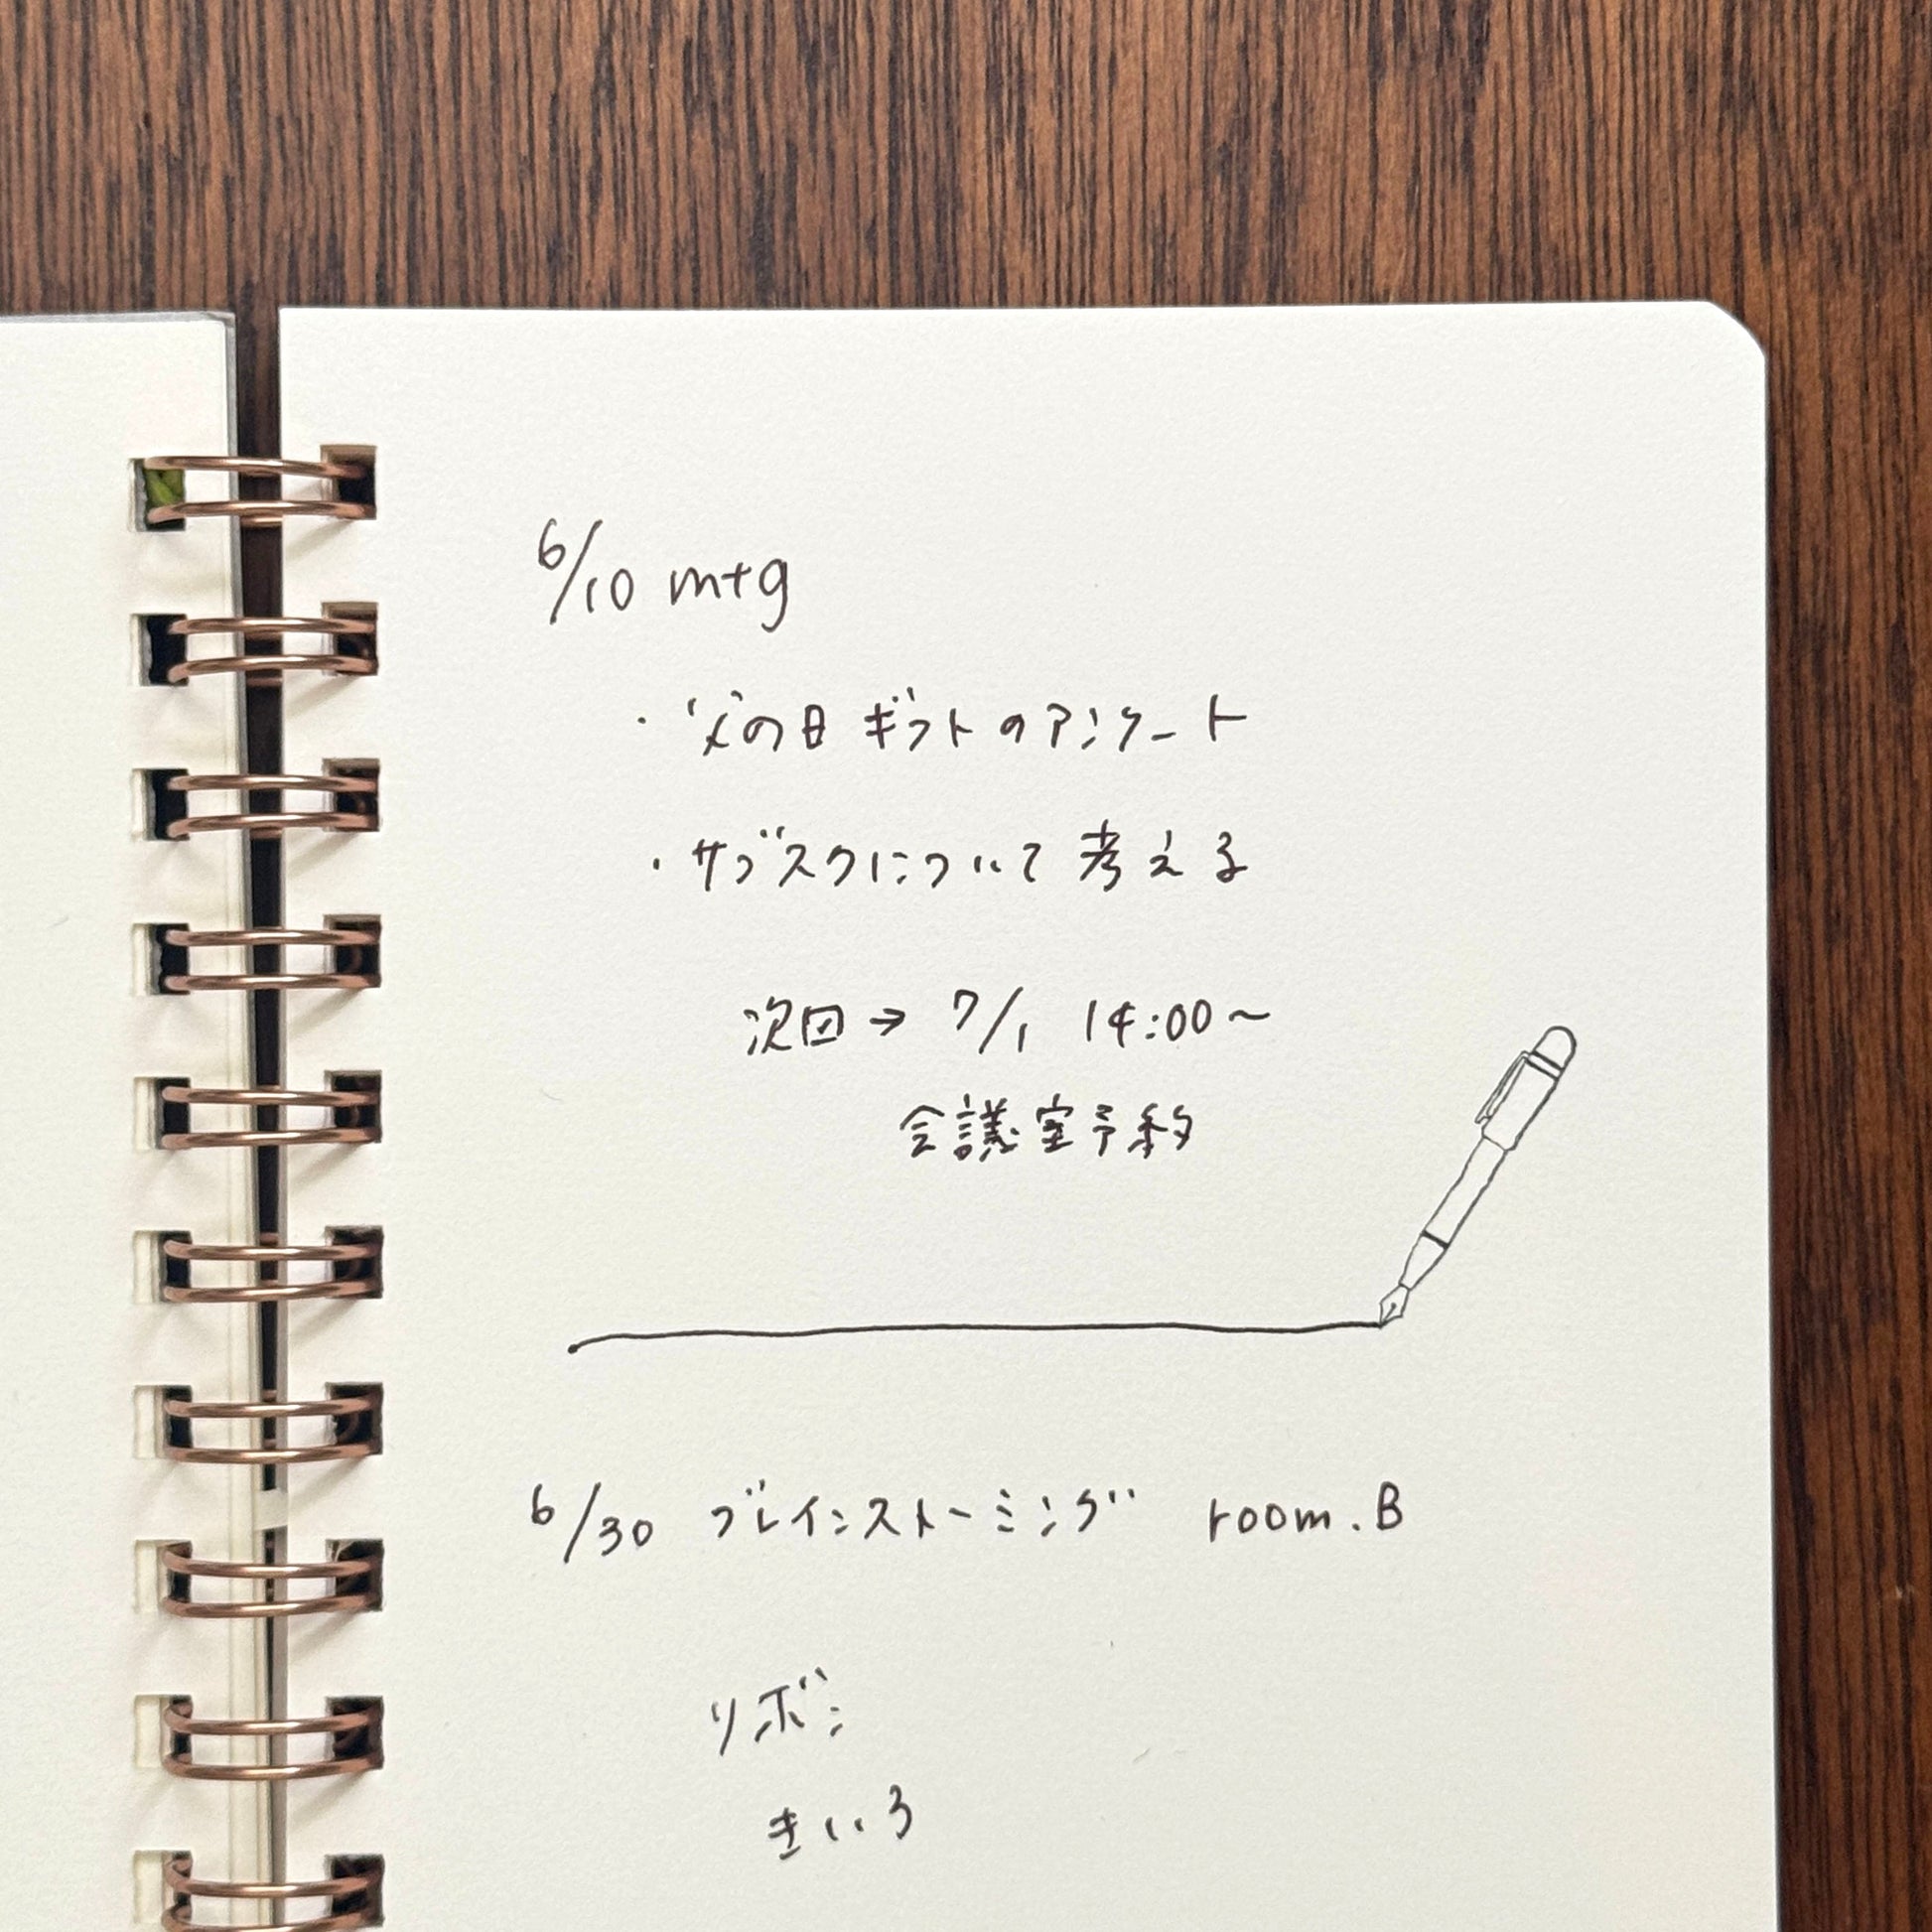 6/10 mtg
・父の日ギフトのアンケート
・サブスクについて考える
次回→ 7/1 14:00〜
会議室予約
6/30 ブレインストーミング room.B
リボン
きいろ